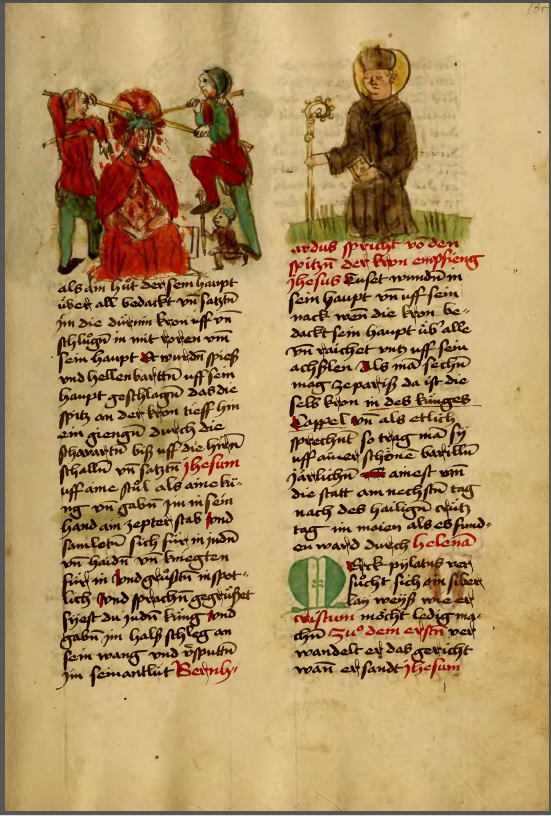 als ain hůt der sein haupt
über all bedackt vñ satztñ
jm die dürnin kron uff vñ
schlůgñ in mit roren vm̄
sein haupt Et wurdñ spieß
vnd hellenbarttñ uff sein
haupt geschlagñ das die
spitz an der kron tieff hin
ein giengñ durch die
schwarttñ biß uff die hirñ
schallñ vñ satztñ Jhesum
uff aine stůl als aine kü-
ng vñ gabñ jm in sein
hand ain zepter stab vnd
samlotñ sich für in judñ
vñ haidñ vñ kniegten
für in vnd grůstñ in spot-
lich vnd sprachñ gegrüßet
siyest du judñ küng vnd
gabñ jm halß schleg an
sein wang vnd v̄sputtñ
jm sein antlüt Bernh-
ardus spricht vō den
spitzñ der kron empfieng
Jhesus tuset wundñ in
sein haupt vñ uff sein
nack wen die kron be-
dackt sein haupt üb alle
vñ raichet vntz uff sein
achslen Als mā sechñ
mag ze pariß da ist die
selb kron in des künges
Cappel vñ als etlich
sprechnt so trag mā sy
uff ainer schöne barillñ
järlichñ ainest vm̄
die statt am nechstñ tag
nach des hailigñ crütz
tag im maien als es fund-
en ward durch helenā
Merck pylatus ver
sůcht sich ein siben
lay weiß wie er
cristum möcht ledig ma-
chñ Zuo dem erstñ ver
wandelt er das gericht
wañ er sandt Jhesum